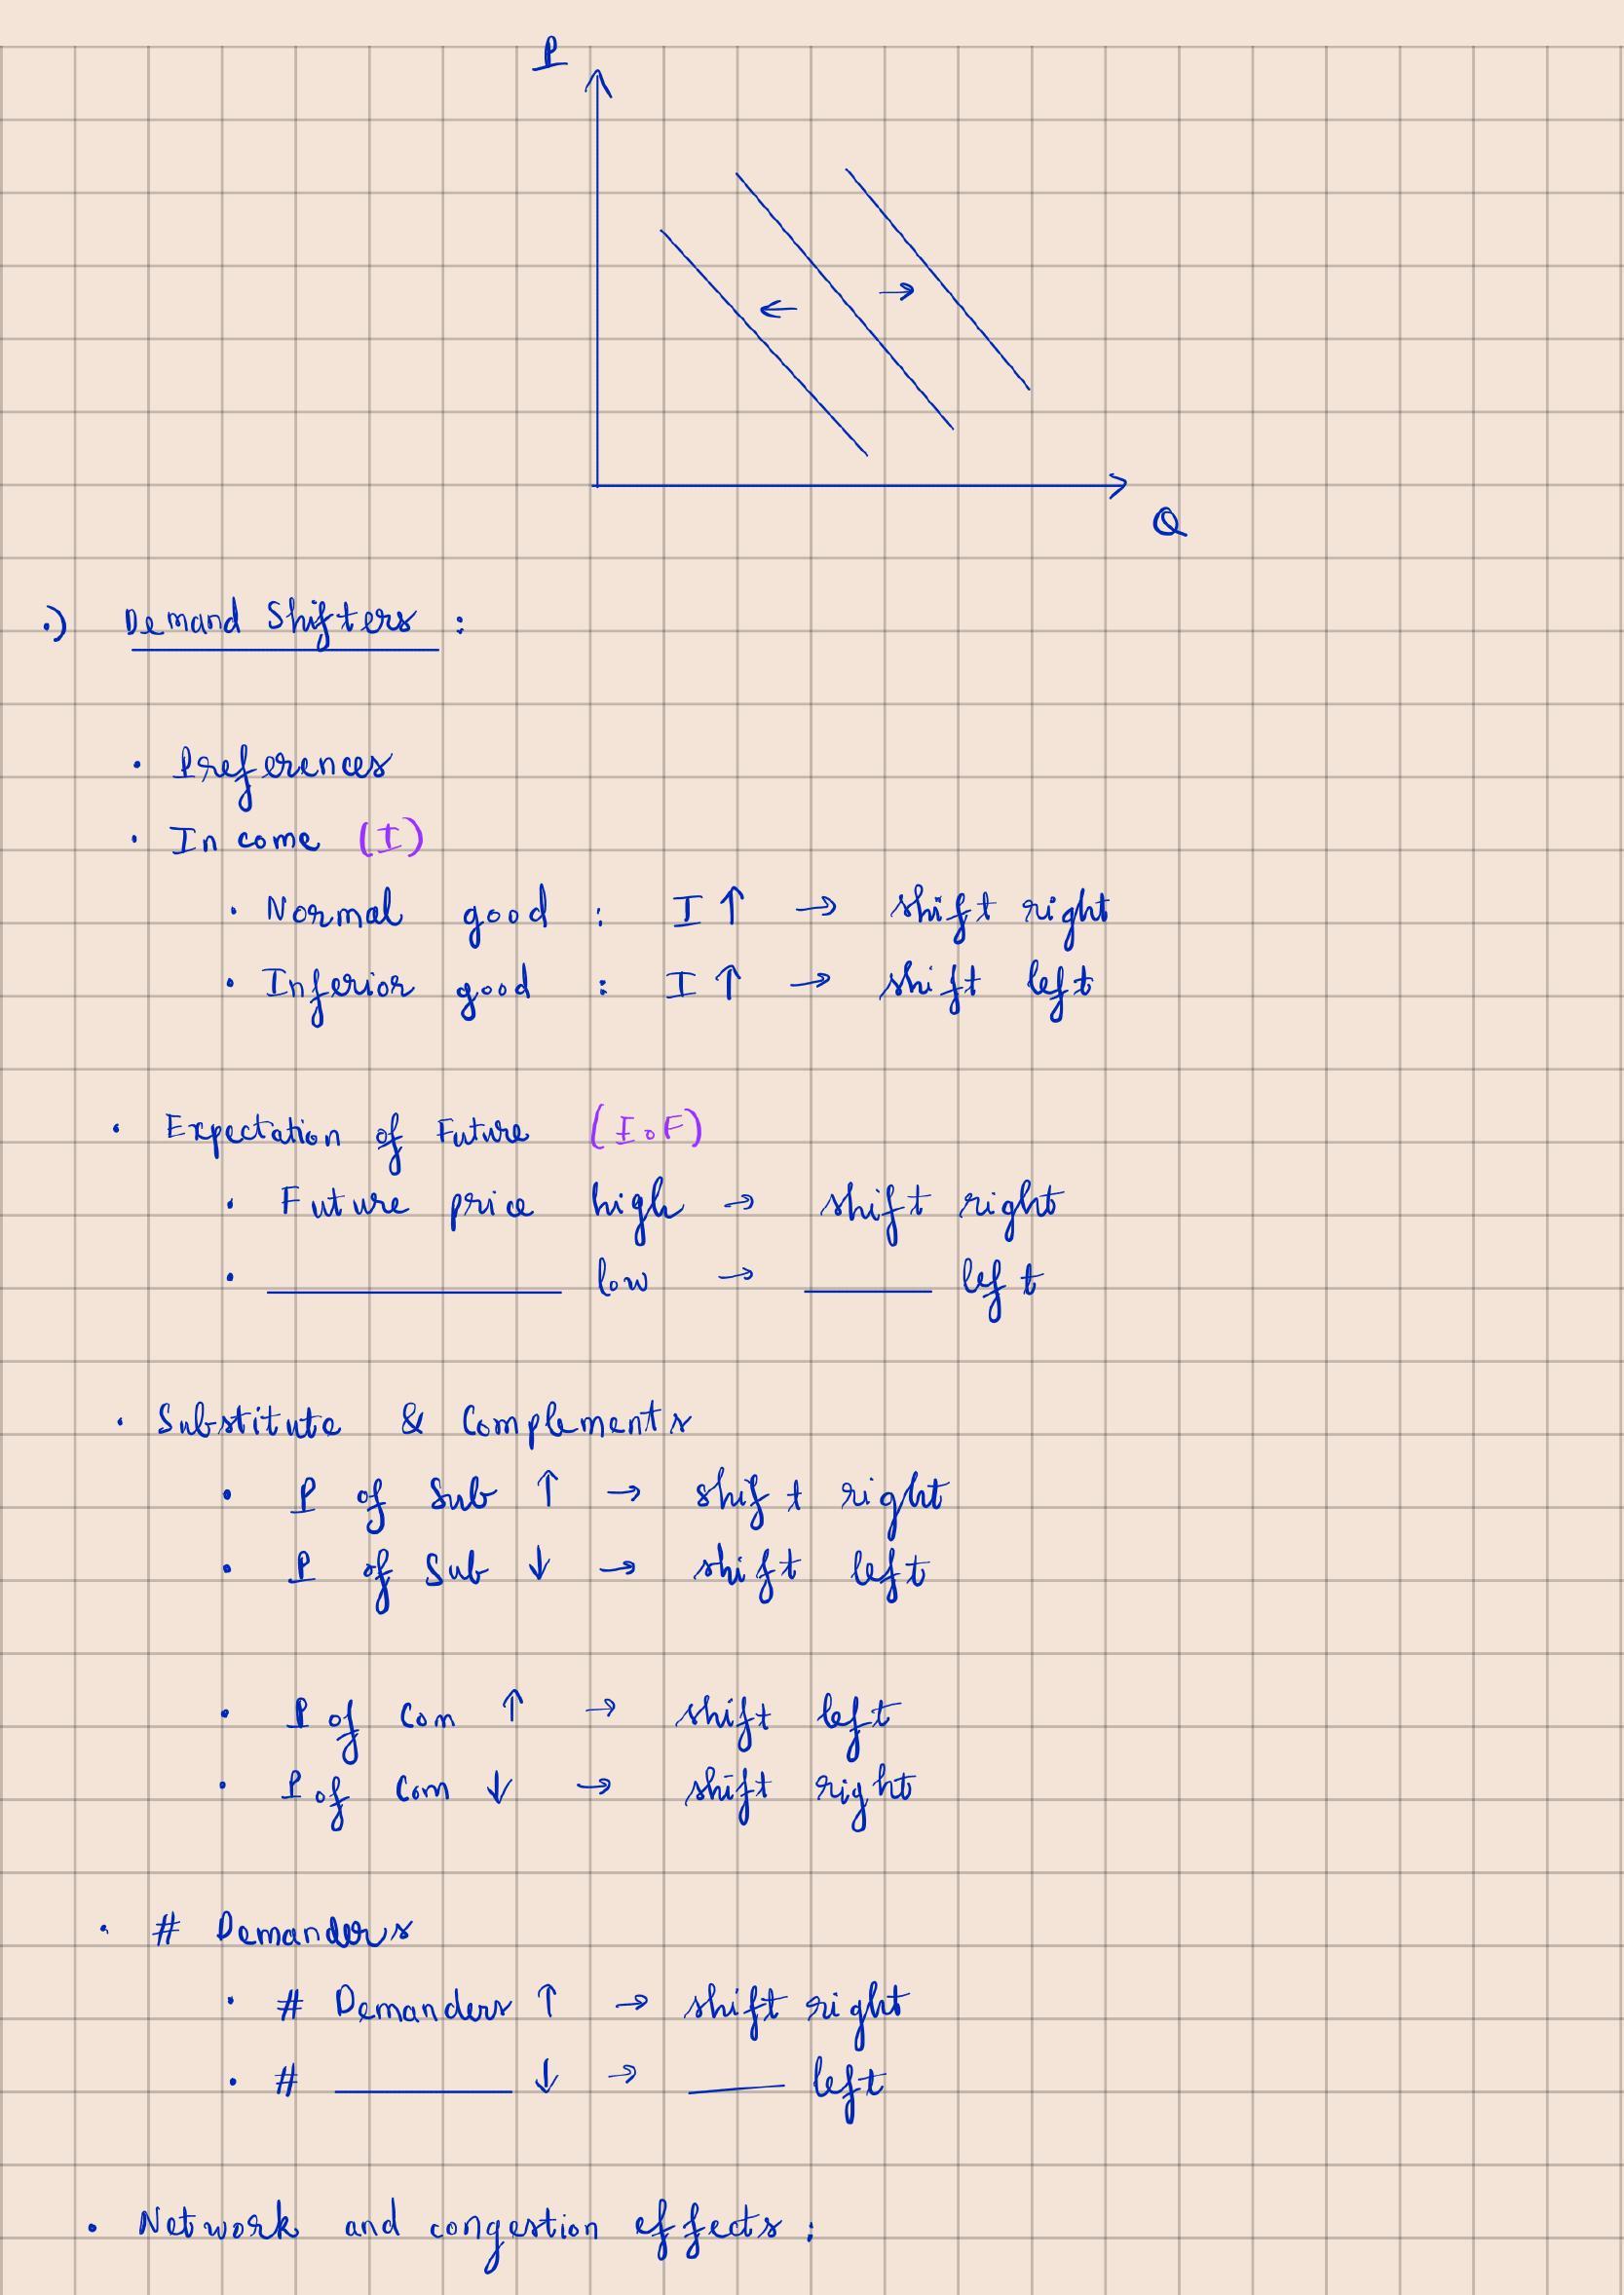 P
Q
.) Demand Shifters :
· Preferences
· Income (I)
· Normal good : I ↑ → shift right
· Inferior good : I ↑ → shift left
· Expectation of Future (I.F)
· Future price high → shift right
· ________ low → ____ left
· Substitute & Complements
· P of Sub ↑ → shift right
· P of Sub ↓ → shift left
· P of Com ↑ → shift left
· P of Com ↓ → shift right
· # Demanders
· # Demanders ↑ → shift right
· # ________ ↓ → ____ left
· Network and congestion effects :